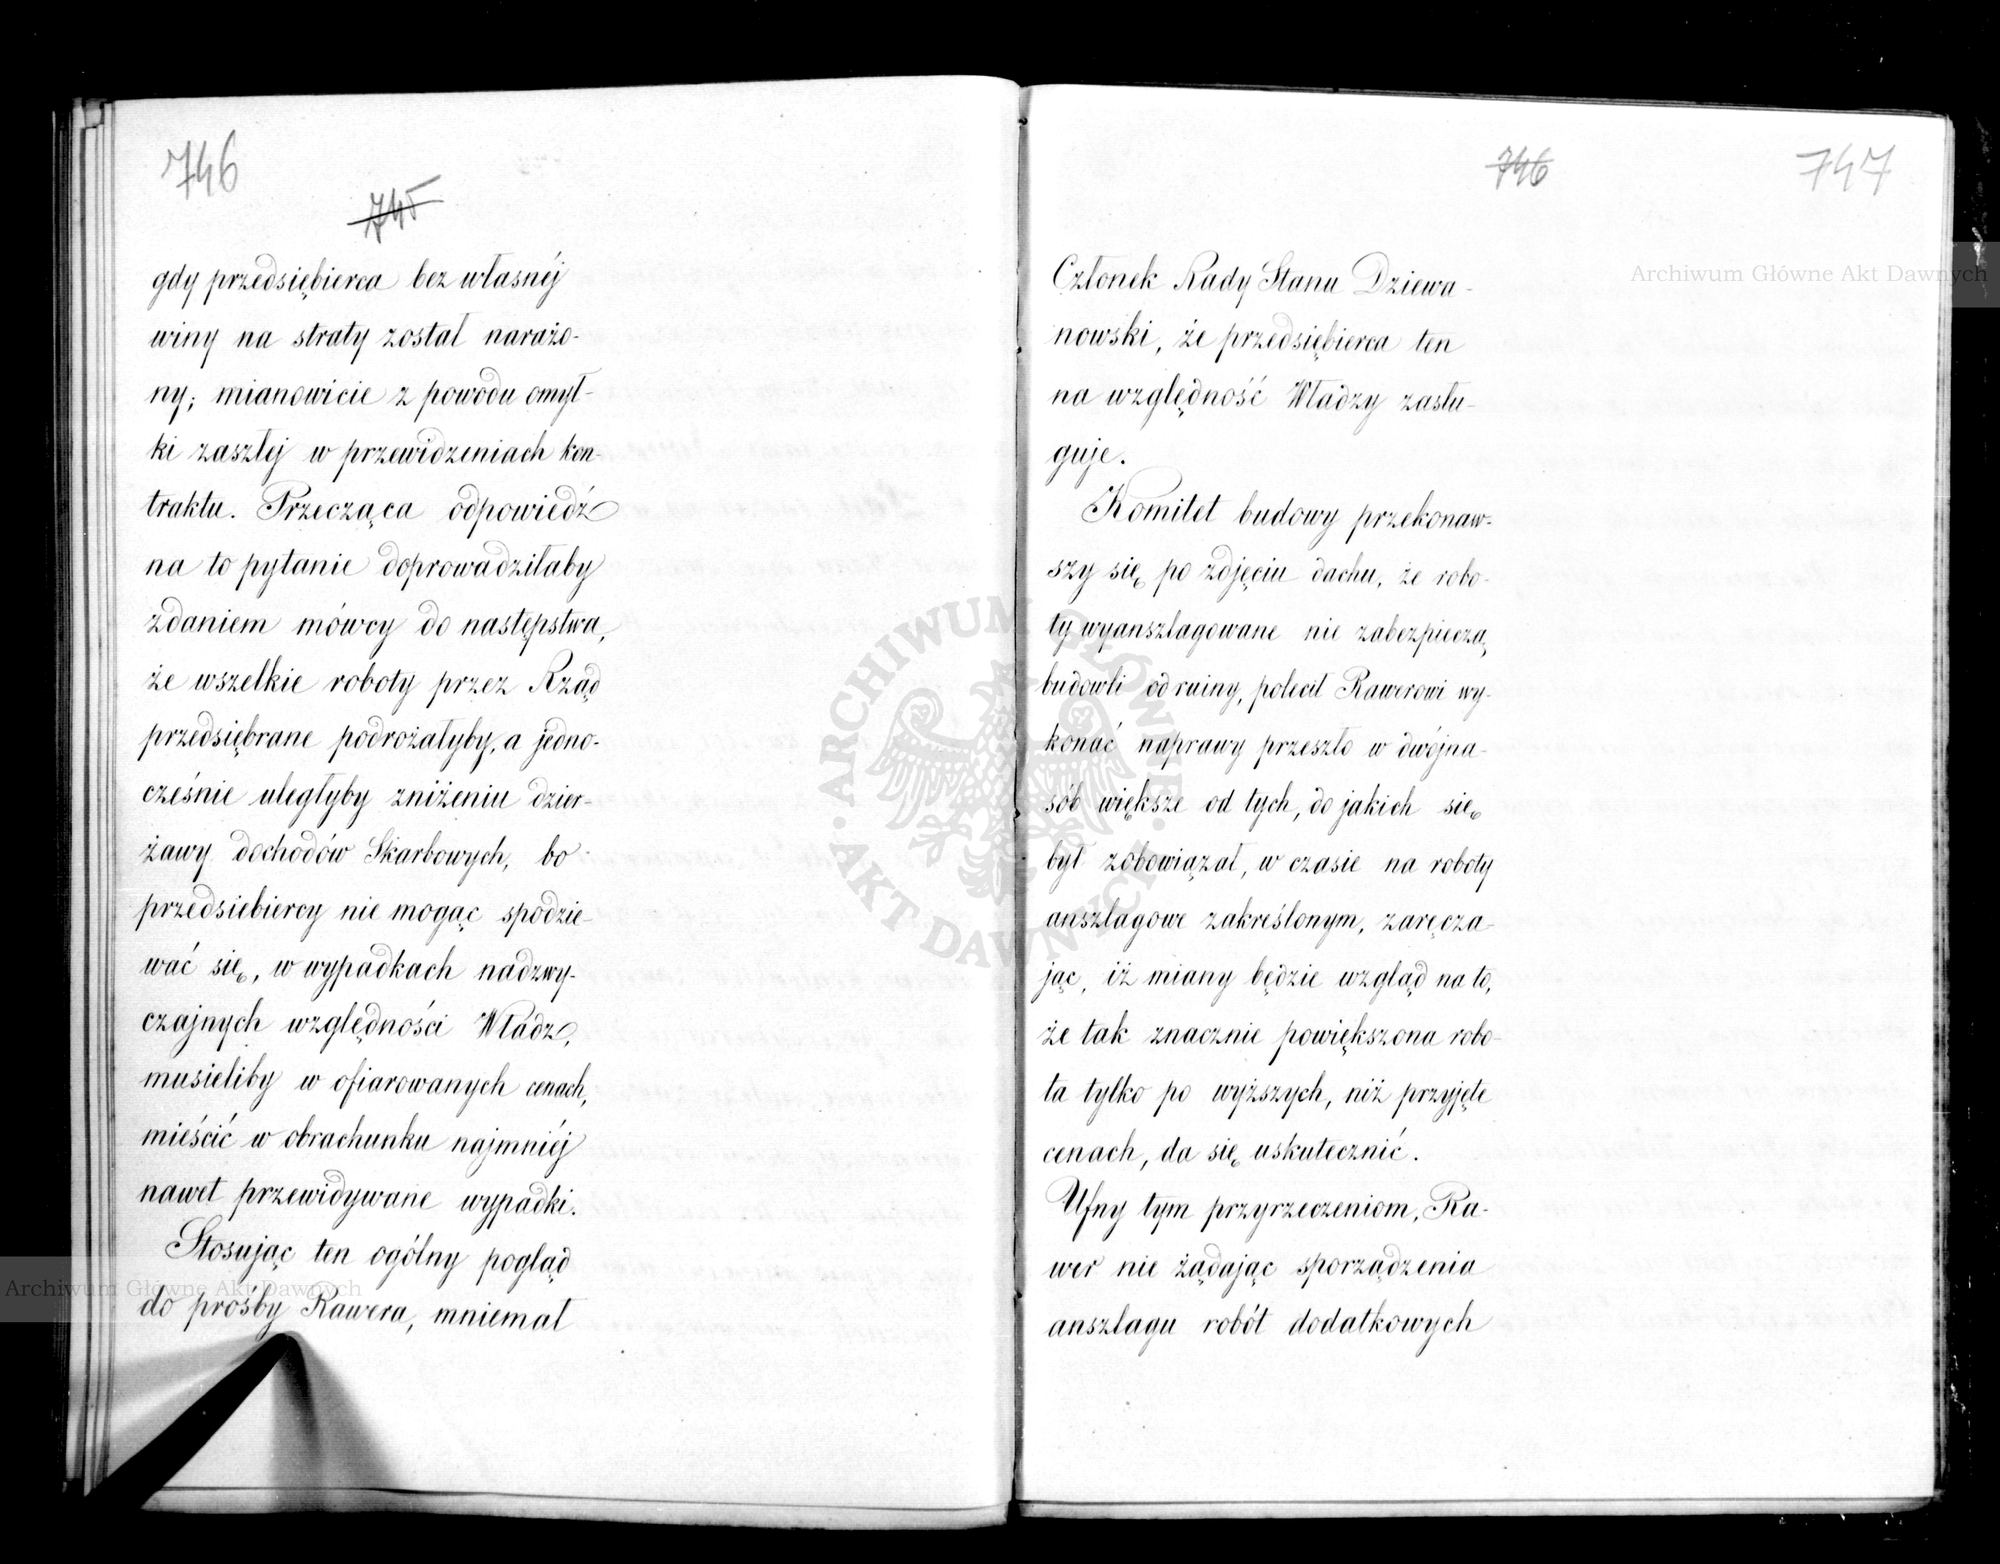 746
745
gdy przedsiębierca bez własnéj
winy na straty został narażo-
ny; mianowicie z powodu omył-
ki zaszłej w przewidzeniach kon-
traktu. Przecząca odpowiedź
na to pytanie doprowadziłaby
zdaniem mówcy do następstwa,
że wszelkie roboty przez Rząd
przedsiębrane podrożałyby, a jedno-
cześnie uległyby zniżeniu dzier-
żawy dochodów Skarbowych, bo
przedsiebiercy nie mogąc spodzie-
wać się, w wypadkach nadzwy-
czajnych względności Władz,
musieliby w ofiarowanych cenach,
mieścić w obrachunku najmniéj
nawet przewidywane wypadki.
Stosując ten ogólny pogląd
do prośby Rawera, mniemał
746
747
Członek Rady Stanu Dziewa-
nowski, że przedsiębierca ten
na względność Władzy zasłu-
guje.
Komitet budowy przekonaw-
szy się po zdjęciu dachu, że robo-
ty wyanszlagowane nie zabezpieczą
budowli od ruiny, polecił Rawerowi wy-
konać naprawy przeszło w dwójna-
sób większe od tych, do jakich się
był zobowiązał, w czasie na roboty
anszlagowe zakreślonym, zaręcza-
jąc, iż miany będzie wzgląd na to,
że tak znacznie powiększona robo-
ta tylko po wyższych, niż przyjęte
cenach, da się uskutecznić.
Ufny tym przyrzeczeniom, Ra-
wer nie żądając sporządzenia
anszlagu robót dodatkowych
Archiwum Główne Akt Dawnych
Archiwum Główne Akt Dawnych
ARCHIWUM GŁÓWNE AKT DAWNYCH